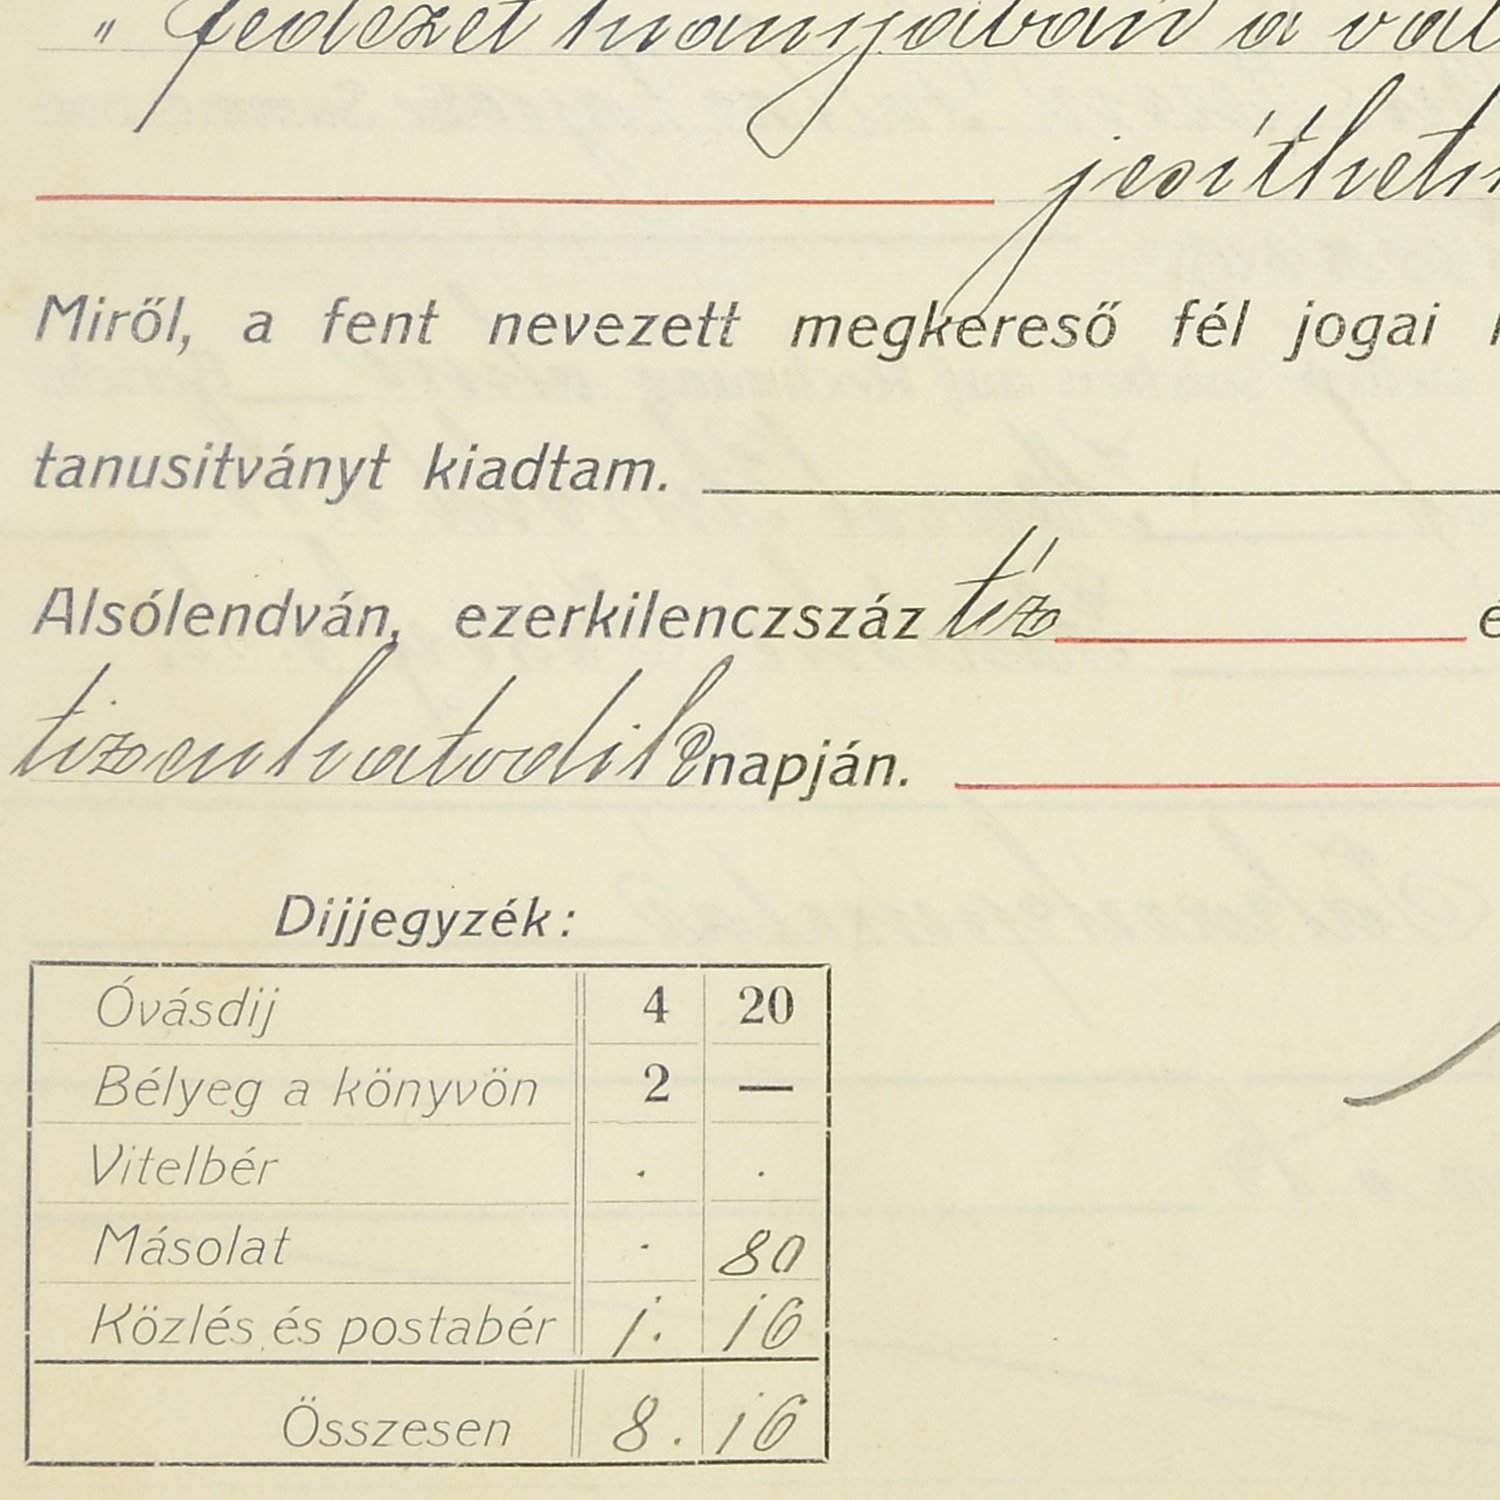 " fedezet hiányában a vál
jesíthetı
Miről, a fent nevezett megkereső fél jogai
tanusitványt kiadtam.
Alsólendván, ezerkilenczszáz tíz é
tizenhatodik napján.
Dijjegyzék:
Óvásdij 4 20
Bélyeg a könyvön 2 —
Vitelbér . .
Másolat . 80
Közlés és postabér 1. 16
Összesen 8. 16